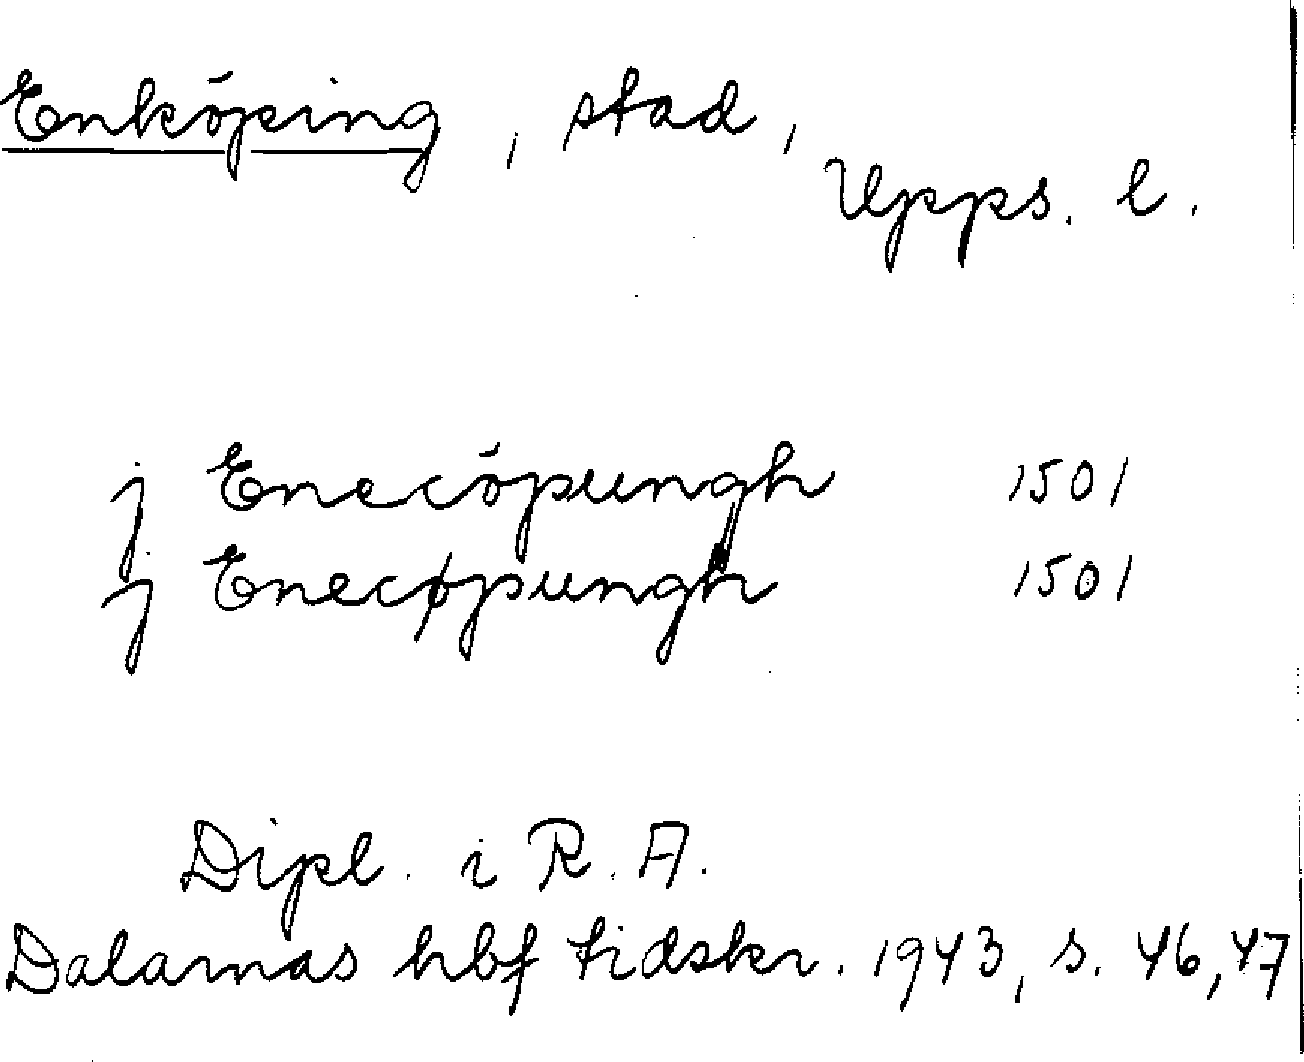 Enköping, stad,
Upps. l.
j Enecöpungh 1501
j Enecøpungh 1501
Dipl. i R. A.
Dalarnas hbf tidskr. 1943, s. 46,47